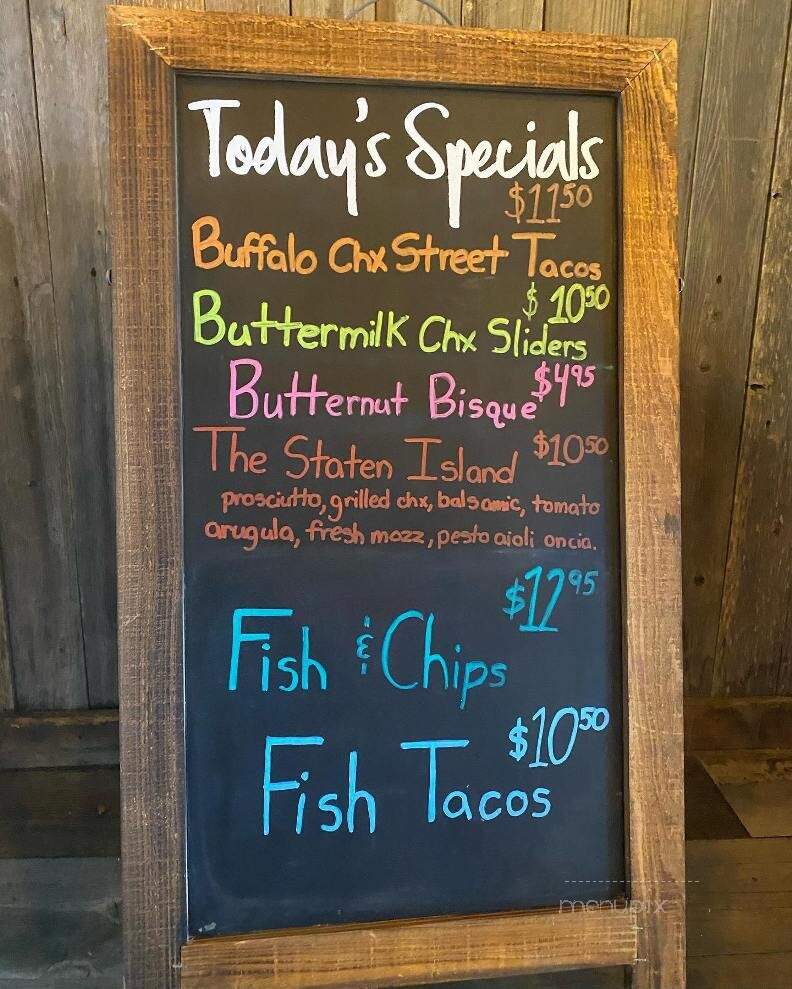 Today's Specials
$1150
Buffalo Chx Street Tacos
$ 1050
Buttermilk Chx Sliders
Butternut Bisque $495
The Staten Island $1050
prosciutto, grilled chx, balsamic, tomato
arugula, fresh mozz, pesto aioli on cia.
$1295
Fish & Chips
$1050
Fish Tacos
menupix